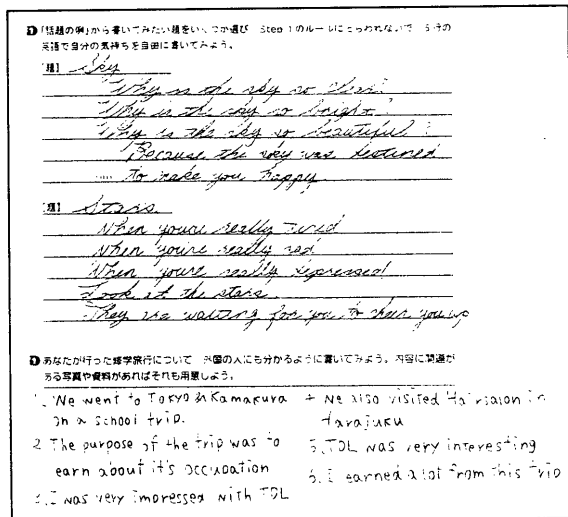 「話題の例」から書いてみたい題をいくつか選び Step 1のルールにとらわれないで 5行の
英語で自分の気持ちを自由に書いてみよう。
[題] Sky
"Why is the sky so clear?
Why is the sky so bright?
Why is the sky so beautiful?
Because the sky was destined
to make you happy
[題] Stars
When you're really tired
When you're really sad
When you're really depressed
Look at the stars.
They are waiting for you to cheer you up
あなたが行った修学旅行について 外国の人にも分かるように書いてみよう。内容に関連が
ある写真や資料があればそれも用意しよう。
1. We went to Tokyo Kamakura
on a school trip.
2. The purpose of the trip was to
earn about it's occupation
3. I was very impressed with TDL
4. We also visited Hair salon in
Harajuku
5. TDL was very interesting
6. I earned a lot from this trip